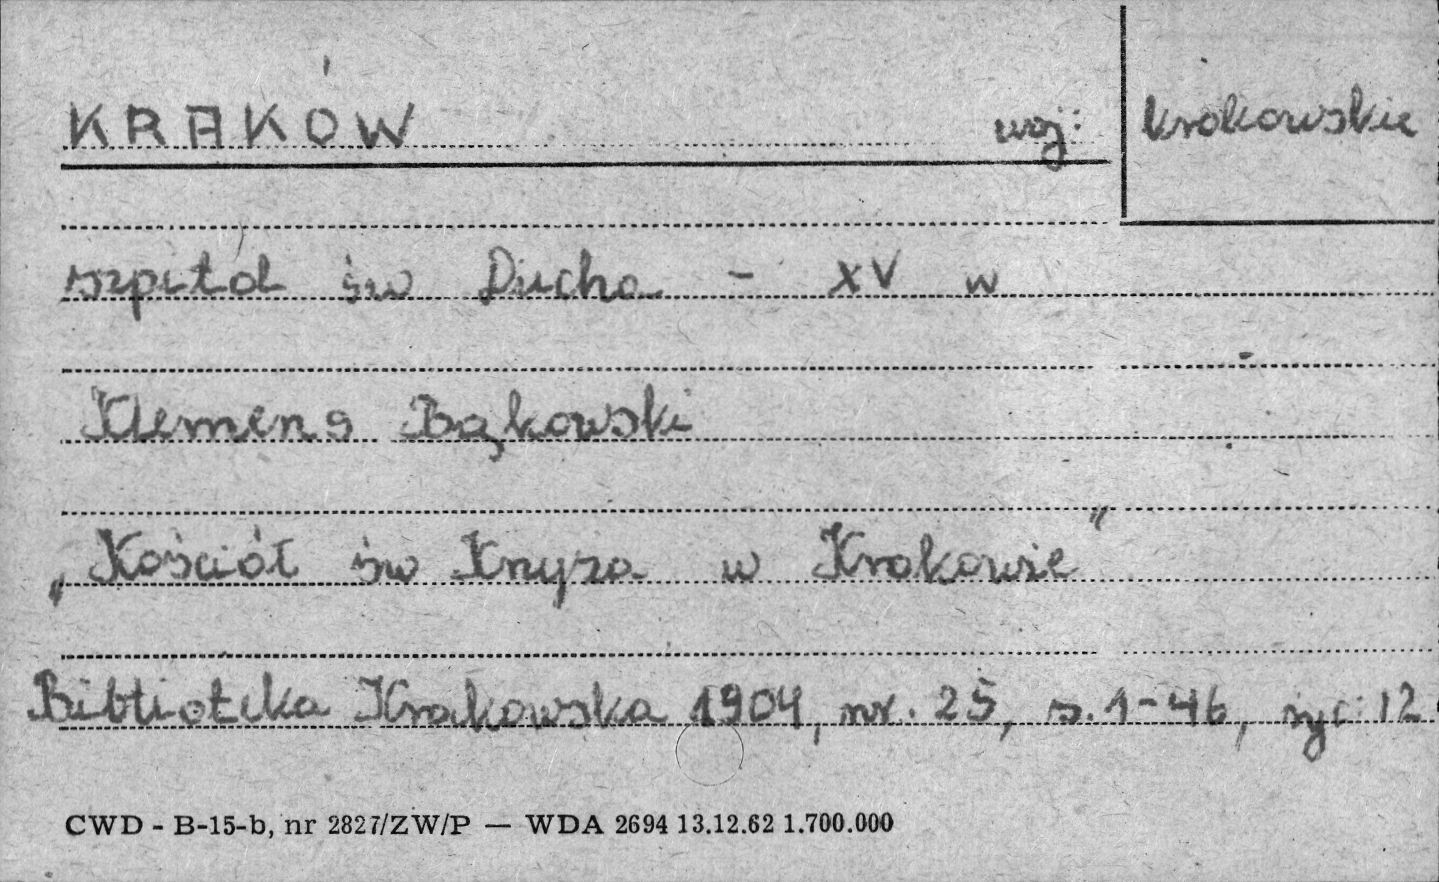 KRAKÓW woj: krakowskie
szpital św Ducha - XV w
Klemens Bąkowski
„Kościół św Krzyża w Krakowie"
Biblioteka Krakowska 1904, nr. 25, s. 1-46, ryc. 12
CWD - B-15-b, nr 2827/ZW/P — WDA 2694 13.12.62 1.700.000